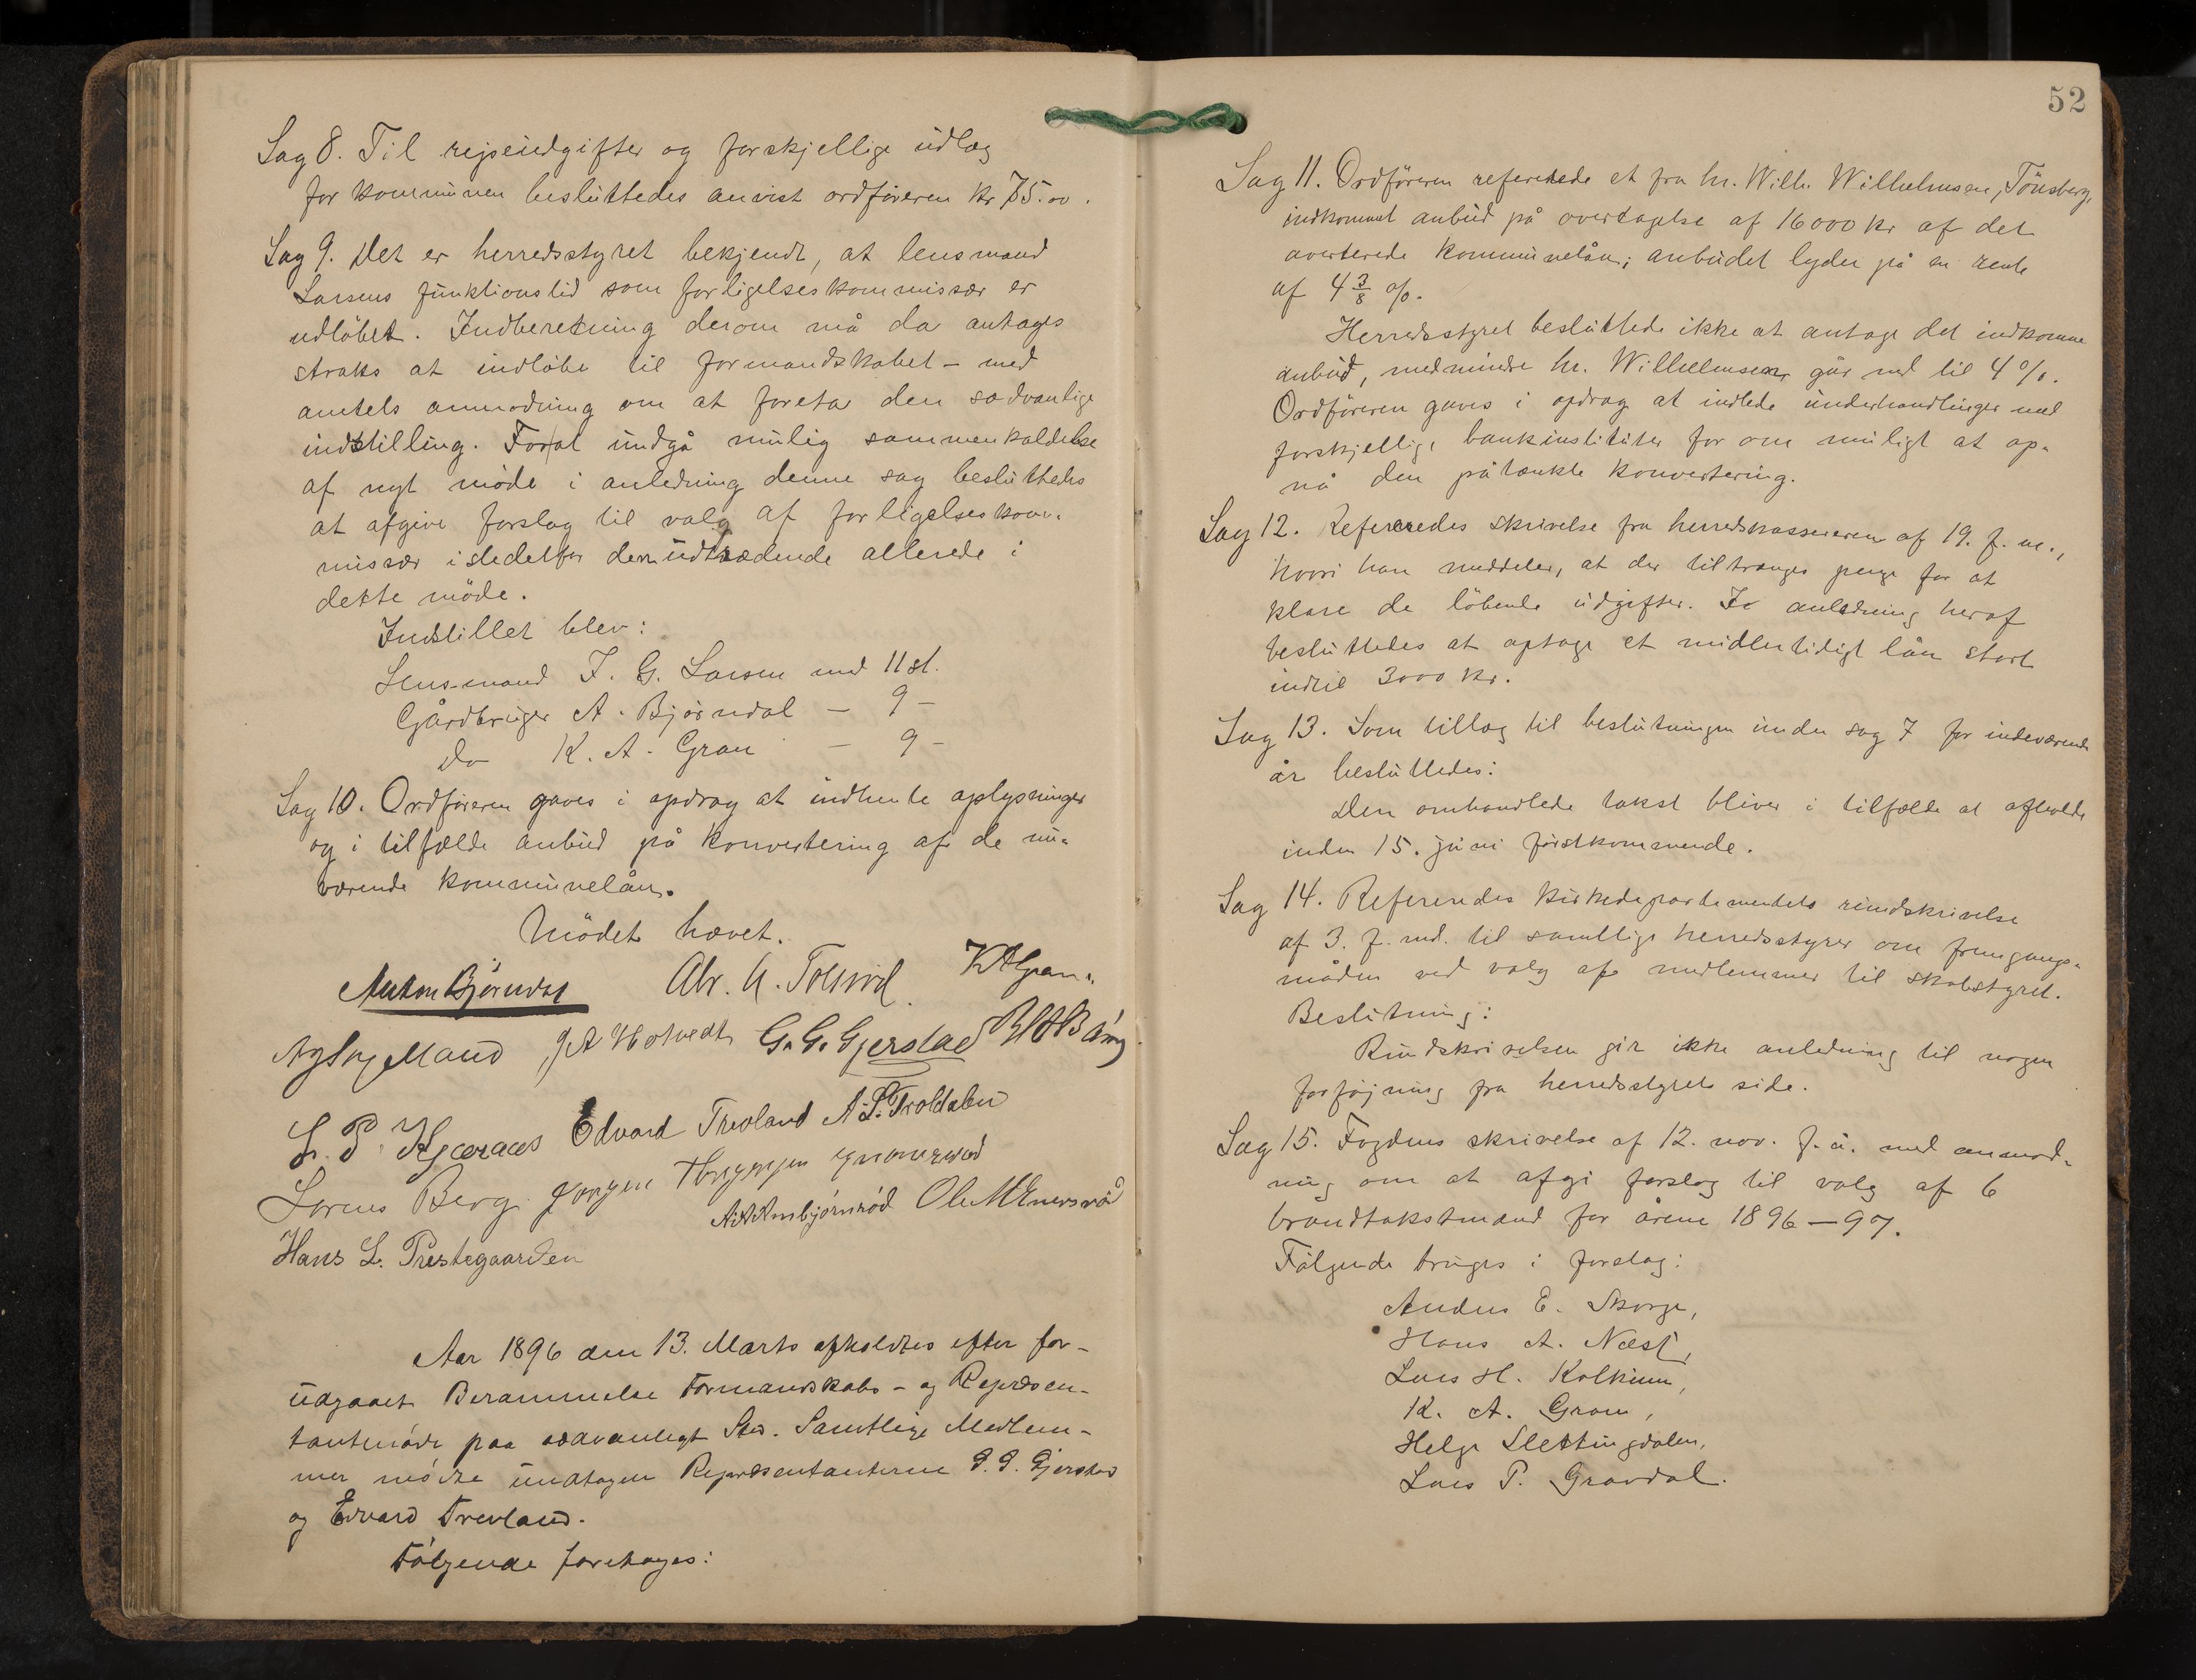 Sag 8. Til rejseudgifter og forskjellige udlæg
for kommunen besluttedes anvist ordføreren kr 75.00.
Sag 9. Det er herredsstyret bekjendt, at lensmand
Larsens funktionstid som forligelseskommissær er
udløbet. Indberetning derom må da antages
straks at indløbe til formandskabet – med
amtets anmodning om at foreta den sædvanlige
indstilling. For at undgå mulig sammenkaldelse
af nyt møde i anledning denne sag besluttedes
at afgive forslag til valg af forligelseskom-
missær istedetfor den udtrædende allerede i
dette møde.
Indstillet blev:
Lensmand F. G. Larsen med 11 st.
Gårdbruger A. Bjørndal – 9 –
do K. A. Gran – 9 –
Sag 10. Ordføreren gaves i opdrag at indhente oplysninger
og i tilfælde anbud på konvertering af de nu-
værende kommunelån.
Mødet hævet.
Anton Bjørndal Abr. K A Gran
J A Holtvedt G. G. Gjerstad
L. P. Edvard Trevland A. P. Troldsbu
Sørens Berg Jørgen
Ole M Enersrød
Hans L. Prestegaarden
Aar 1896 den 13. Marts afholdtes efter for-
udgaaet Berammelse Formandskabs- og Repræsen-
tantmøde paa sædvanligt Sted. Samtlige Medlem-
mer mødte undtagen Repræsentanterne G. G. Gjerstad
og Edvard Trevland.
Følgende foretoges:
52
Sag 11. Ordføreren refererede et fra hr. Wilh. Wilhelmsen, Tönsberg,
indkommet anbud på overtagelse af 16000 kr af det
averterede kommunelån; anbudet lyder på en rente
af 4 3/8 %.
Herredsstyret besluttede ikke at antage det indkomne
anbud, medmindre hr. Wilhelmsen går ned til 4 %.
Ordføreren gaves i opdrag at indlede underhandlinger med
forskjellige bankinstituter for om muligt at op-
nå den påtænkte konvertering.
Sag 12. Refereredes skrivelse fra herredskassereren af 19. f. m.,
hvori han meddeler, at der tiltrænges penge for at
klare de løbende udgifter. I anledning heraf
besluttedes at optage et midlertidigt lån stort
indtil 3000 kr.
Sag 13. Som tillæg til beslutningen under sag 7 for indeværende
år besluttedes:
Den omhandlede takst bliver i tilfælde at afholde
inden 15. juni førstkommende.
Sag 14. Refereredes Kirkedepartementets rundskrivelse
af 3. f. md. til samtlige herredsstyrer om fremgangs-
måden ved valg af medlemmer til skolestyret.
Beslutning:
Rundskrivelsen gir ikke anledning til nogen
forføjning fra herredsstyrets side.
Sag 15. Fogdens skrivelse af 12. nov. f. å. med anmod-
ning om at afgi forslag til valg af 6
brandtakstmænd for årene 1896 – 97.
Følgende bruges i forslag:
Anders E. Skorge,
Hans A. Næst,
Lars H. Kolkinn,
K. A. Gran,
Helge Slettingdalen,
Lars P. Gravdal.